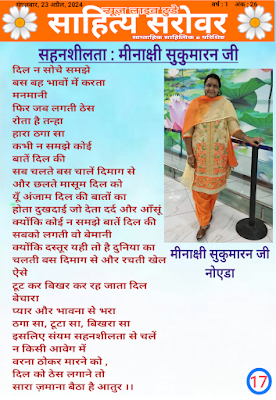 मंगलवार, 23 अप्रैल, 2024
वर्ष : 1 अंक : 26
साहित्य सरोवर
साप्ताहिक साहित्यिक e परिशिष्ट
सहनशीलता : मीनाक्षी सुकुमारन जी
दिल न सोचे समझे
बस बह भावों में करता
मनमानी
फिर जब लगती ठेस
रोता है तन्हा
हारा ठगा सा
कभी न समझे कोई
बातें दिल की
सब चलते बस चालें दिमाग से
और छलते मासूम दिल को
यूँ अंजाम दिल की बातों का
होता दुखदाई जो देता दर्द और आँसूं
क्योंकि कोई न समझे बातें दिल की
सबको लगती वो बेमानी
क्योंकि दस्तूर यही तो है दुनिया का
चलती बस दिमाग से और रचती खेल
ऐसे
टूट कर बिखर कर रह जाता दिल
बेचारा
प्यार और भावना से भरा
ठगा सा, टूटा सा, बिखरा सा
इसलिए संयम सहनशीलता से चलें
न किसी आवेग में
वरना ठोकर मारने को ,
दिल को ठेस लगाने तो
सारा ज़माना बैठा है आतुर ।।
मीनाक्षी सुकुमारन जी
नोएडा
17